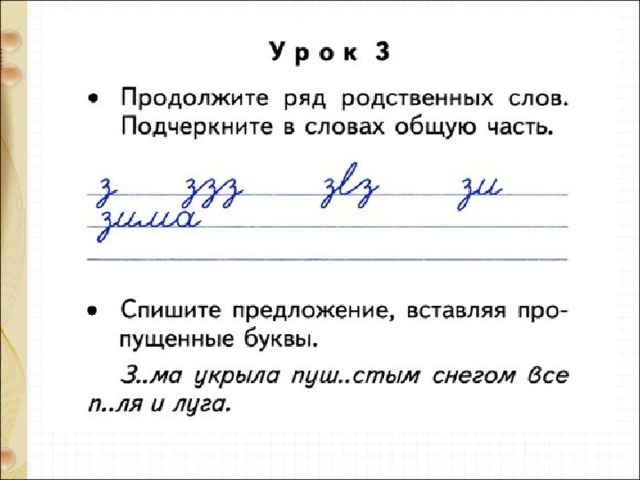 Урок 3
• Продолжите ряд родственных слов.
Подчеркните в словах общую часть.
з ззз звз зи
зима
• Спишите предложение, вставляя про-
пущенные буквы.
З..ма укрыла пуш..стым снегом все
п..ля и луга.